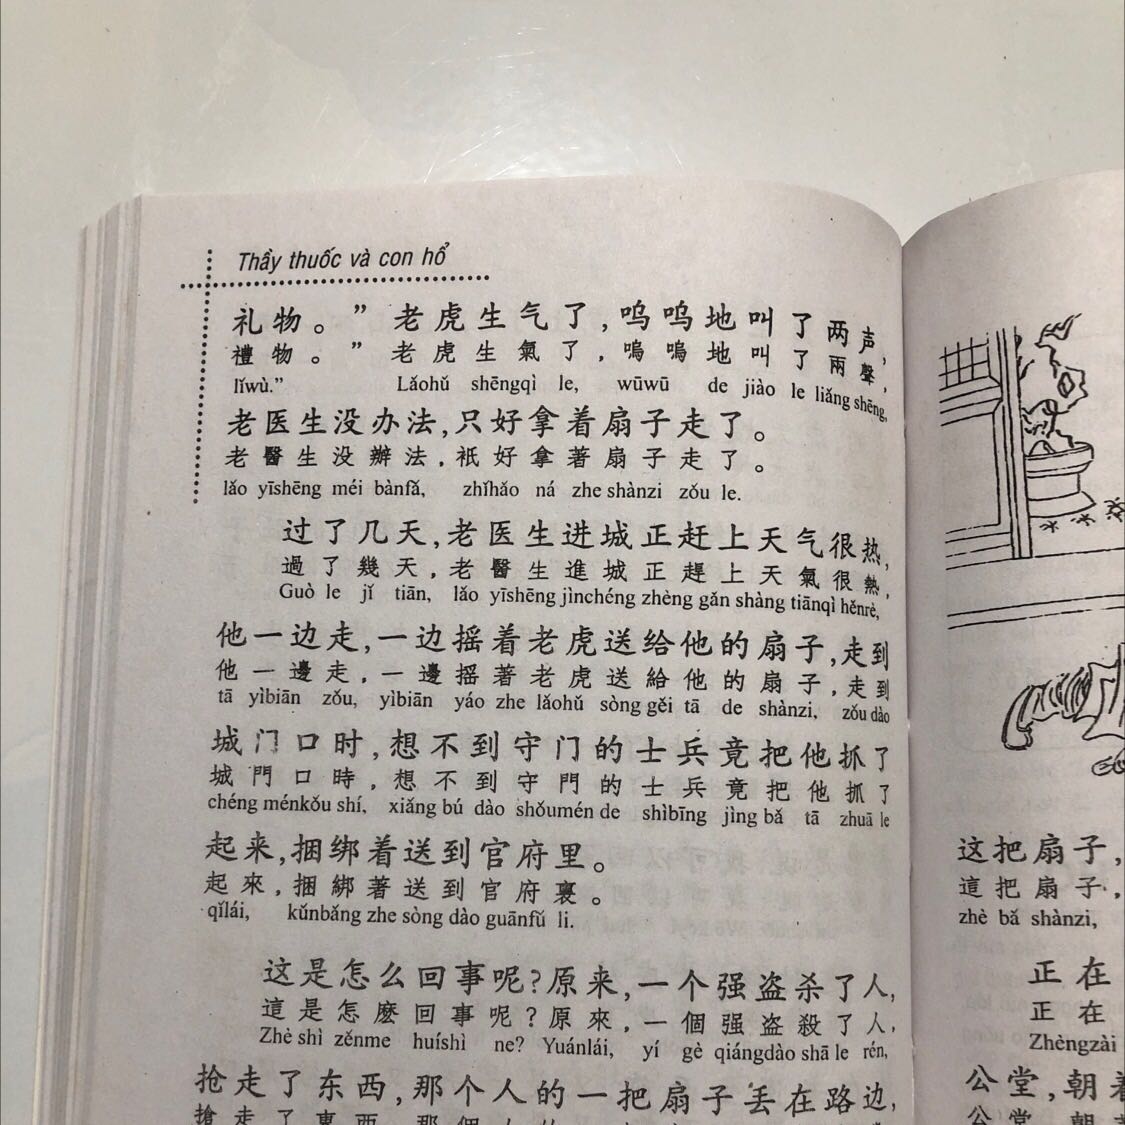 Thầy thuốc và con hổ
礼物。” 老虎生气了,呜呜地叫了两声,
禮物。” 老虎生氣了,嗚嗚地叫了兩聲,
lǐwù.” Lǎohǔ shēngqì le, wūwū de jiào le liǎng shēng,
老医生没办法,只好拿着扇子走了。
老醫生没辦法,祇好拿著扇子走了。
lǎo yīshēng méi bànfǎ, zhǐhǎo ná zhe shànzi zǒu le.
过了几天,老医生进城正赶上天气很热,
過了幾天,老醫生進城正趕上天氣很熱,
Guò le jǐ tiān, lǎo yīshēng jìnchéng zhèng gǎn shàng tiānqì hěnrè,
他一边走,一边摇着老虎送给他的扇子,走到
他一邊走,一邊摇著老虎送給他的扇子,走到
tā yìbiān zǒu, yìbiān yáo zhe lǎohǔ sòng gěi tā de shànzi, zǒu dào
城门口时,想不到守门的士兵竟把他抓了
城門口時,想不到守門的士兵竟把他抓了
chéng ménkǒu shí, xiǎng bú dào shǒumén de shìbīng jìng bǎ tā zhuā le
起来,捆绑着送到官府里。
起來,捆綁著送到官府裏。
qǐlái, kǔnbǎng zhe sòng dào guānfǔ li.
这是怎么回事呢?原来,一个强盗杀了人,
這是怎麽回事呢?原來,一個强盗殺了人,
Zhè shì zěnme huíshì ne? Yuánlái, yí gè qiángdào shā le rén,
抢走了东西,那个人的一把扇子丢在路边,
搶走了東西,那個人的
这把扇子,
這把扇子,
zhè bǎ shànzi,
正在
正在
Zhèngzài
公堂,朝着
公堂,朝